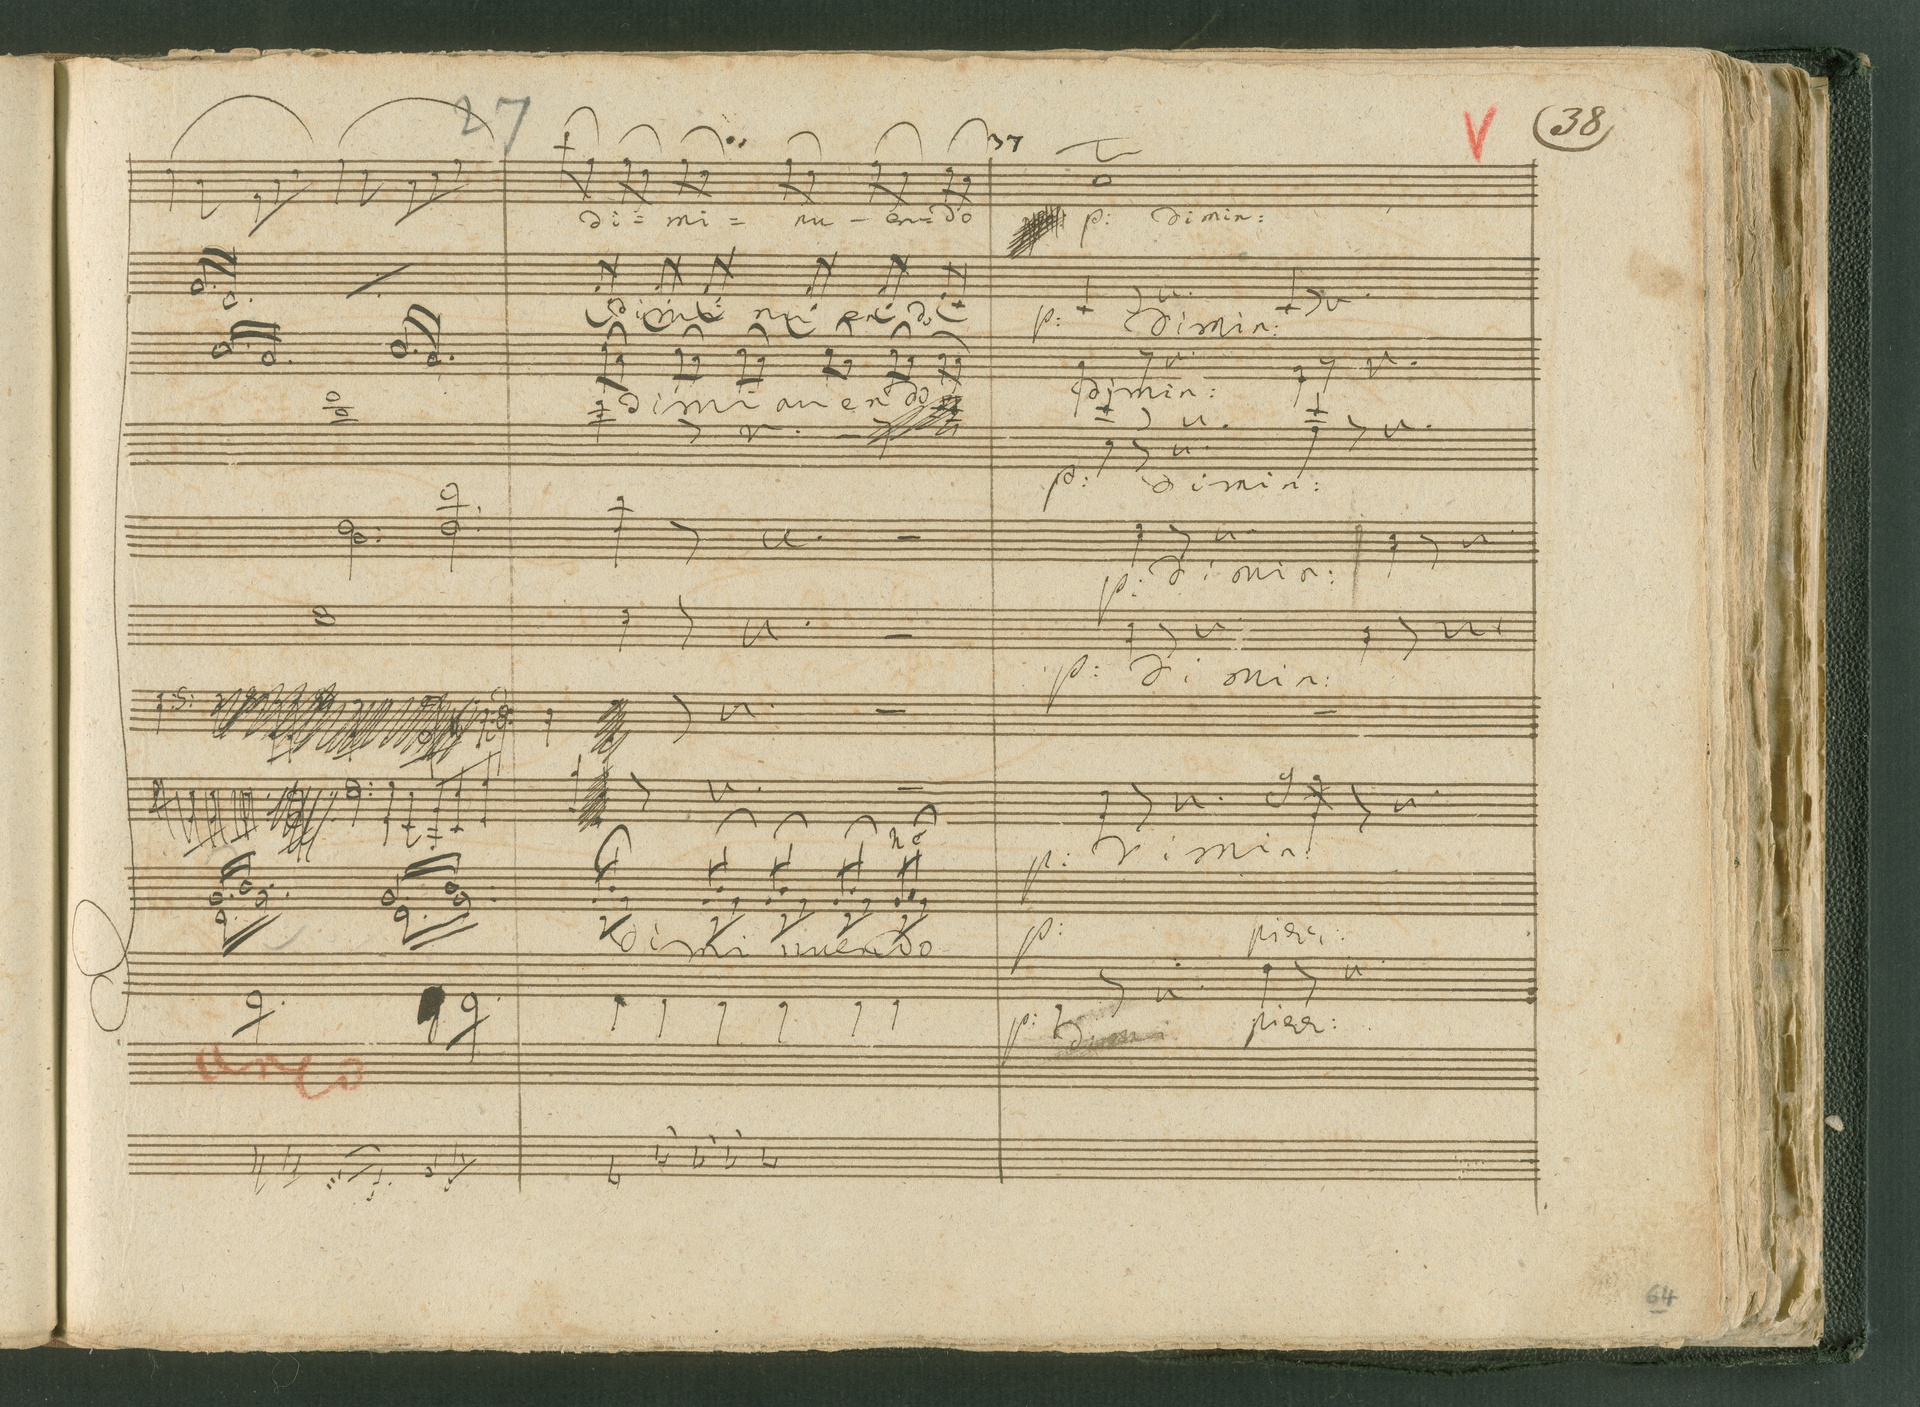 27
38
37
di= mi= nu - en=do
p: dimin:
dimi nu en do
p: dimin:
dimi nu en do
dimin:
p: dimin:
p: dimin:
p: dimin:
s:
p: dimin:
dimi nuendo
p: pizz:
p: pizz:
arco
64